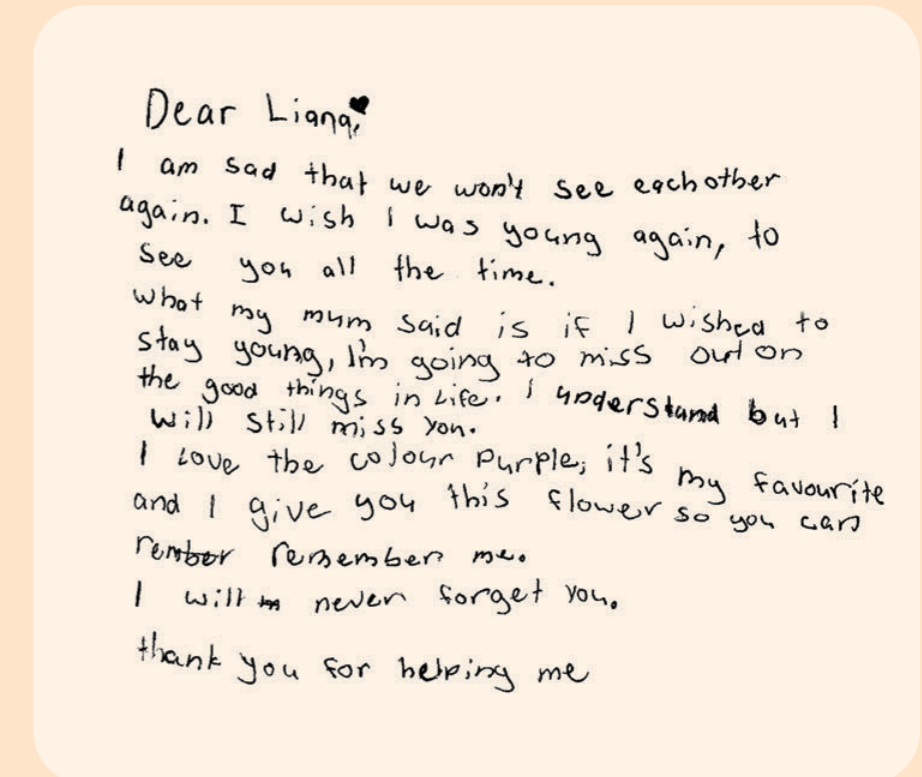 Dear Liana,
I am sad that we won't see eachother
again. I wish I was young again, to
see you all the time.
what my mum said is if I wished to
stay young, I'm going to miss out on
the good things in Life. I understand but I
will still miss you.
I Love the colour purple, it's my favourite
and I give you this flower so you can
rember remember me.
I will never forget you.
thank you for helping me